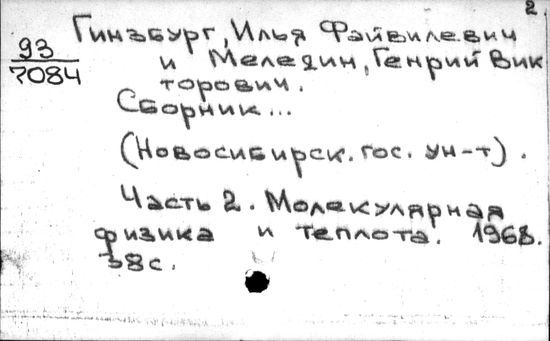 2
93
7084
Гинзбург, Илья Файвилевич
и Меледин, Генрий Вик
торович.
Сборник...
(Новосибирск. гос. ун-т).
Часть 2. Молекулярная
физика и теплота. 1968.
38с.